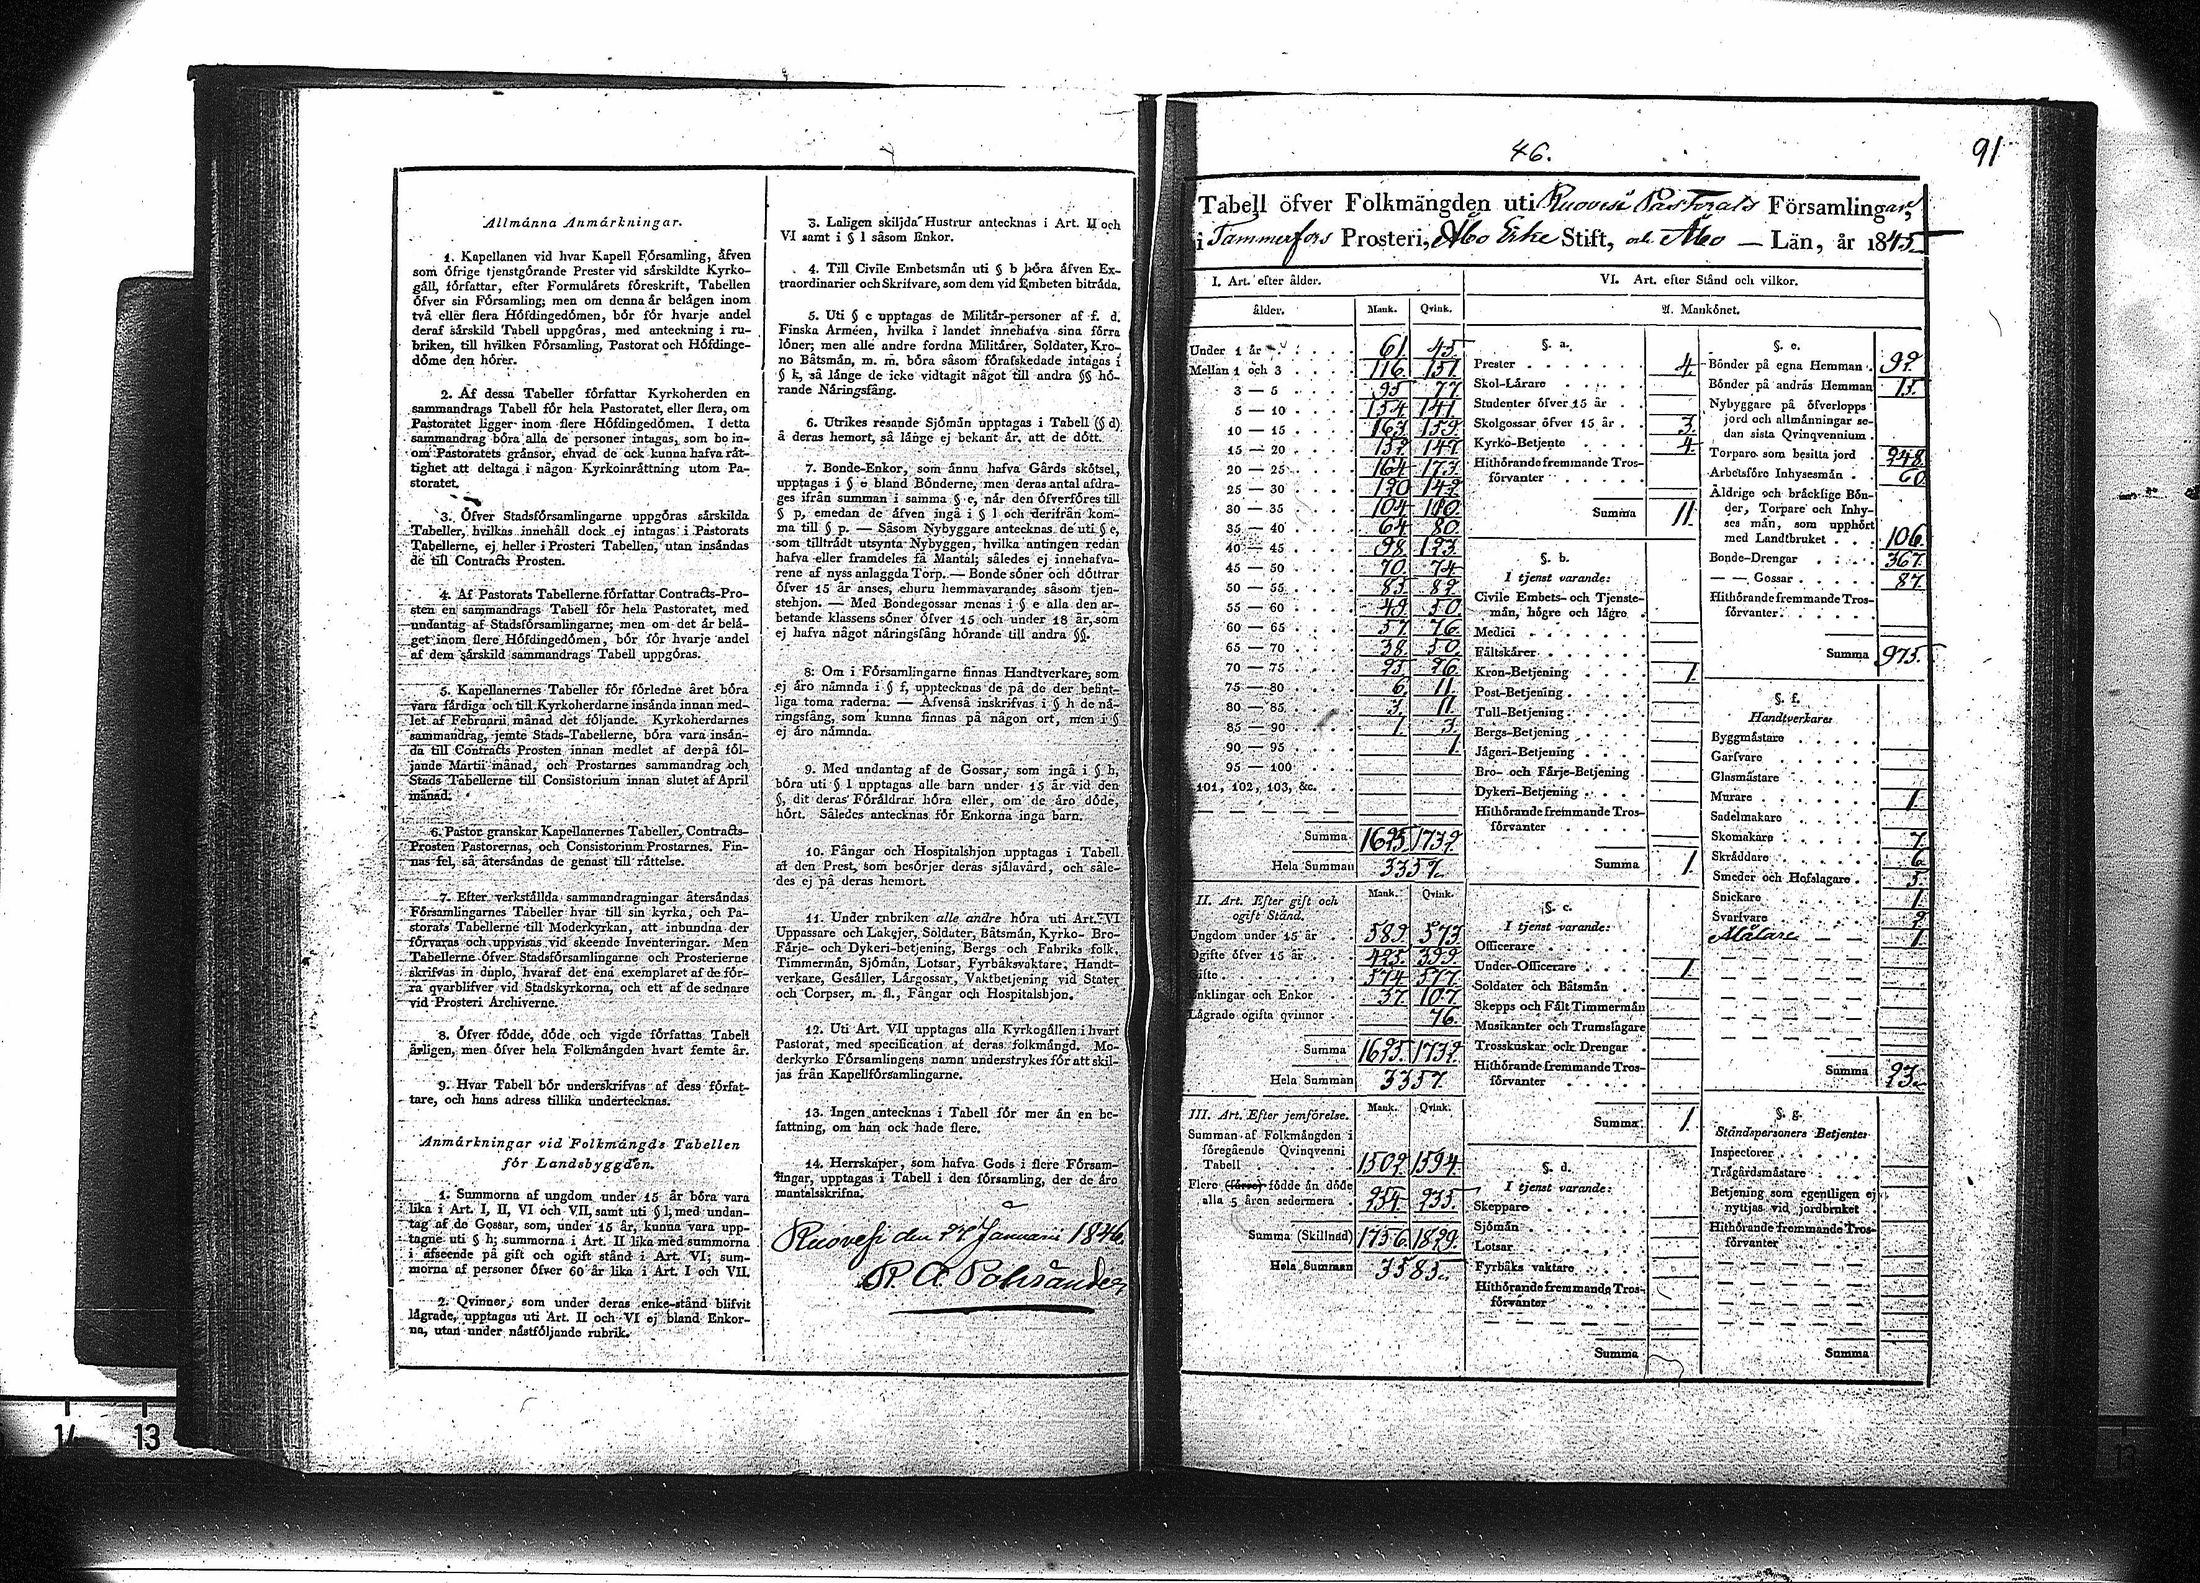 Allmänna Anmärkningar.
1. Kapellanen vid hvar Kapell Församling, äfven
som öfrige tjenstgörande Prester vid särskildte Kyrko-
gäll, författar, efter Formulärets föreskrift, Tabellen
öfver sin Församling; men om denna är belägen inom
två eller flera Höfdingedömen, bör för hvarje andel
deraf särskild Tabell uppgöras, med anteckning i ru-
briken, till hvilken Församling, Pastorat och Höfdinge-
döme den hörer.
2. Af dessa Tabeller författar Kyrkoherden en
sammandrags Tabell för hela Pastoratet, eller flera, om
Pastoratet ligger inom flere Höfdingedömen. I detta
sammandrag böra alla de personer intagas, som bo in-
om Pastoratets gränsor, ehvad de ock kunna hafva rät-
tighet att deltaga i någon Kyrkoinrättning utom Pa-
storatet.
3. Öfver Stadsförsamlingarne uppgöras särskilda
Tabeller, hvilkas innehåll dock ej intages i Pastorats
Tabellerne, ej heller i Prosteri Tabellen, utan insändas
de till Contracts Prosten.
4. Af Pastorats Tabellerne författar Contracts-Pro-
sten en sammandrags Tabell för hela Pastoratet, med
undantag af Stadsförsamlingarne; men om det är belä-
get inom flere Höfdingedömen, bör för hvarje andel
af dem särskild sammandrags Tabell uppgöras.
5. Kapellanernes Tabeller för förledne året böra
vara färdiga och till Kyrkoherdarne insända innan med-
let af Februarii månad det följande. Kyrkoherdarnes
sammandrag, jemte Stads-Tabellerne, böra vara insän-
da till Contracts Prosten innan medlet af derpå föl-
jande Martii månad, och Prostarnes sammandrag och
Stads Tabellerne till Consistorium innan slutet af April
månad.
6. Pastor granskar Kapellanernes Tabeller, Contracts-
Prosten Pastorernas, och Consistorium Prostarnes. Fin-
nas fel, så återsändas de genast till rättelse.
7. Efter verkställda sammandragningar återsändas
Församlingarnes Tabeller hvar till sin kyrka, och Pa-
storats Tabellerne till Moderkyrkan, att inbundna der
förvaras och uppvisas vid skeende Inventeringar. Men
Tabellerne öfver Stadsförsamlingarne och Prosterierne
skrifvas in duplo, hvaraf det ena exemplaret af de för-
ra qvarblifver vid Stadskyrkorna, och ett af de sednare
vid Prosteri Archiverne.
8. Öfver födde, döde och vigde författas Tabell
årligen, men öfver hela Folkmängden hvart femte år.
9. Hvar Tabell bör underskrifvas af dess författ-
tare, och hans adress tillika undertecknas.
Anmärkningar vid Folkmängds Tabellen
för Landsbyggden.
1. Summorna af ungdom under 15 år böra vara
lika i Art. I, II, VI och VII, samt uti § l, med undan-
tag af de Gossar, som, under 15 år, kunna vara upp-
tagne uti § h; summorna i Art. II lika med summorna
i afseende på gift och ogift stånd i Art. VI; sum-
morna af personer öfver 60 år lika i Art. I och VII.
2. Qvinnor, som under deras enke-stånd blifvit
lägrade, upptagas uti Art. II och VI ej bland Enkor-
na, utan under nästföljande rubrik.
3. Laligen skiljda Hustrur antecknas i Art. II och
VI samt i § l såsom Enkor.
4. Till Civile Embetsmän uti § b höra äfven Ex-
traordinarier och Skrifvare, som dem vid Embeten biträda.
5. Uti § c upptagas de Militär-personer af f. d.
Finska Arméen, hvilka i landet innehafva sina förra
löner; men alle andre fordna Militärer, Soldater, Kro-
no Båtsmän, m. m. böra såsom förafskedade intagas i
§ k, så länge de icke vidtagit något till andra §§ hö-
rande Näringsfång.
6. Utrikes resande Sjömän upptagas i Tabell (§ d)
å deras hemort, så länge ej bekant är, att de dött.
7. Bonde-Enkor, som ännu hafva Gårds skötsel,
upptagas i § e bland Bönderne, men deras antal afdra-
ges ifrån summan i samma § e, når den öfverföres till
§ p, emedan de äfven ingå i § l och derifrån kom-
ma till § p. — Såsom Nybyggare antecknas de uti § e,
som tillträdt utsynta Nybyggen, hvilka antingen redan
hafva eller framdeles få Mantal; således ej innehafva-
rene af nyss anlaggda Torp. — Bonde söner och döttrar
öfver 15 år anses, ehuru hemmavarande, såsom tjen-
stehjon. — Med Bondegossar menas i § e alla den ar-
betande klassens söner öfver 15 och under 18 år, som
ej hafva något näringsfång hörande till andra §§.
8. Om i Församlingarne finnas Handtverkare, som
ej äro nämnda i § f, upptecknas de på de der befint-
liga toma raderna. — Äfvenså inskrifvas i § h de nä-
ringsfång, som kunna finnas på någon ort, men i §
ej äro nämnda.
9. Med undantag af de Gossar, som ingå i § h,
böra uti § l upptagas alle barn under 15 år vid den
§, dit deras Föräldrar höra eller, om de äro döde,
hört. Således antecknas för Enkorna inga barn.
10. Fångar och Hospitalshjon upptagas i Tabell
af den Prest, som besörjer deras själavård, och såle-
des ej på deras hemort.
11. Under rubriken alle andre höra uti Art. VI
Uppassare och Lakejer, Soldater, Båtsmän, Kyrko- Bro-
Färje- och Dykeri-betjening, Bergs och Fabriks folk,
Timmermän, Sjömän, Lotsar, Fyrbåksvaktare, Handt-
verkare, Gesäller, Lärgossar, Vaktbetjening vid Stater
och Corpser, m. fl., Fångar och Hospitalshjon.
12. Uti Art. VII upptagas alla Kyrkogällen i hvart
Pastorat, med specification af deras folkmängd. Mo-
derkyrko Församlingens namn understrykes för att skil-
jas från Kapellförsamlingarne.
13. Ingen antecknas i Tabell för mer än en be-
fattning, om han ock hade flere.
14. Herrskaper, som hafva Gods i flere Försam-
lingar, upptagas i Tabell i den församling, der de äro
mantalsskrifna.
Ruovesi den 27 Januarii 1846.
46.
91
Tabell öfver Folkmängden uti Ruovesi Pastorats Församlingar,
i Tammerfors Prosteri, Åbo Erke Stift, och Åbo — Län, år 1845.
I. Art. efter ålder.
ålder. Mank. Qvink.
Under 1 år 61. 45.
Mellan 1 och 3 116. 151.
3 — 5 95. 77.
5 — 10 154. 141.
10 — 15 163. 159.
15 — 20 152. 147.
20 — 25 164. 173.
25 — 30 120. 142.
30 — 35 104. 100.
35 — 40 64. 80.
40 — 45 98. 123.
45 — 50 70. 74.
50 — 55 85. 82.
55 — 60 49. 50.
60 — 65 57. 76.
65 — 70 38. 50.
70 — 75 25. 26.
75 — 80 6. 11.
80 — 85 3. 11.
85 — 90 1. 3.
90 — 95 1.
95 — 100
101, 102, 103, &c.
Summa 1625. 1732.
Hela Summan 3357.
II. Art. Efter gift och
ogift Stånd. Mank. Qvink.
Ungdom under 15 år 589. 573.
Ogifte öfver 15 år 425. 399.
Gifte 574. 577.
Enklingar och Enkor 37. 107.
Lägrade ogifta qvinnor 76.
Summa 1625. 1732.
Hela Summan 3357.
III. Art. Efter jemförelse. Mank. Qvink.
Summan af Folkmängden i
föregående Qvinqvenni
Tabell 1502. 1594.
Flere (färre) födde än döde
alla 5 åren sedermera 254. 235.
Summa (Skillnad) 1756. 1829.
Hela Summan 3585.
VI. Art. efter Stånd och vilkor.
A. Mankönet.
§. a.
Prester 4.
Skol-Lärare
Studenter öfver 15 år
Skolgossar öfver 15 år 3.
Kyrko-Betjente 4.
Hithörande fremmande Tros-
förvanter
Summa 11.
§. b.
I tjenst varande:
Civile Embets- och Tjenste-
män, högre och lägre
Medici
Fältskärer
Kron-Betjening 1.
Post-Betjening
Tull-Betjening
Bergs-Betjening
Jägeri-Betjening
Bro- och Färje-Betjening
Dykeri-Betjening
Hithörande fremmande Tros-
förvanter
Summa 1.
§. c.
I tjenst varande:
Officerare
Under-Officerare 1.
Soldater och Båtsmän
Skepps och Fält Timmermän
Musikanter och Trumslagare
Trosskuskar och Drengar
Hithörande fremmande Tros-
förvanter
Summa 1.
§. d.
I tjenst varande:
Skeppare
Sjömän
Lotsar
Fyrbåks vaktare
Hithörande fremmande Tros-
förvanter
Summa
§. e.
Bönder på egna Hemman 92.
Bönder på andras Hemman 15.
Nybyggare på öfverlopps
jord och allmänningar se-
dan sista Qvinqvennium
Torpare som besitta jord 248.
Arbetsföre Inhysesmän 60.
Åldrige och bräcklige Bön-
der, Torpare och Inhy-
ses män, som upphört
med Landtbruket 106.
Bonde-Drengar 367.
— — Gossar 87.
Hithörande fremmande Tros-
förvanter
Summa 975.
§. f.
Handtverkare
Byggmästare
Garfvare
Glasmästare
Murare 1.
Sadelmakare
Skomakare 7.
Skräddare 6.
Smeder och Hofslagare 5.
Snickare 1.
Svarfvare 2.
Målare 1.
Summa 23.
§. g.
Ståndspersoners Betjenter
Inspectorer
Trägårdsmästare
Betjening som egentligen ej
nyttjas vid jordbruket
Hithörande fremmande Tros-
förvanter
Summa
14 13
13